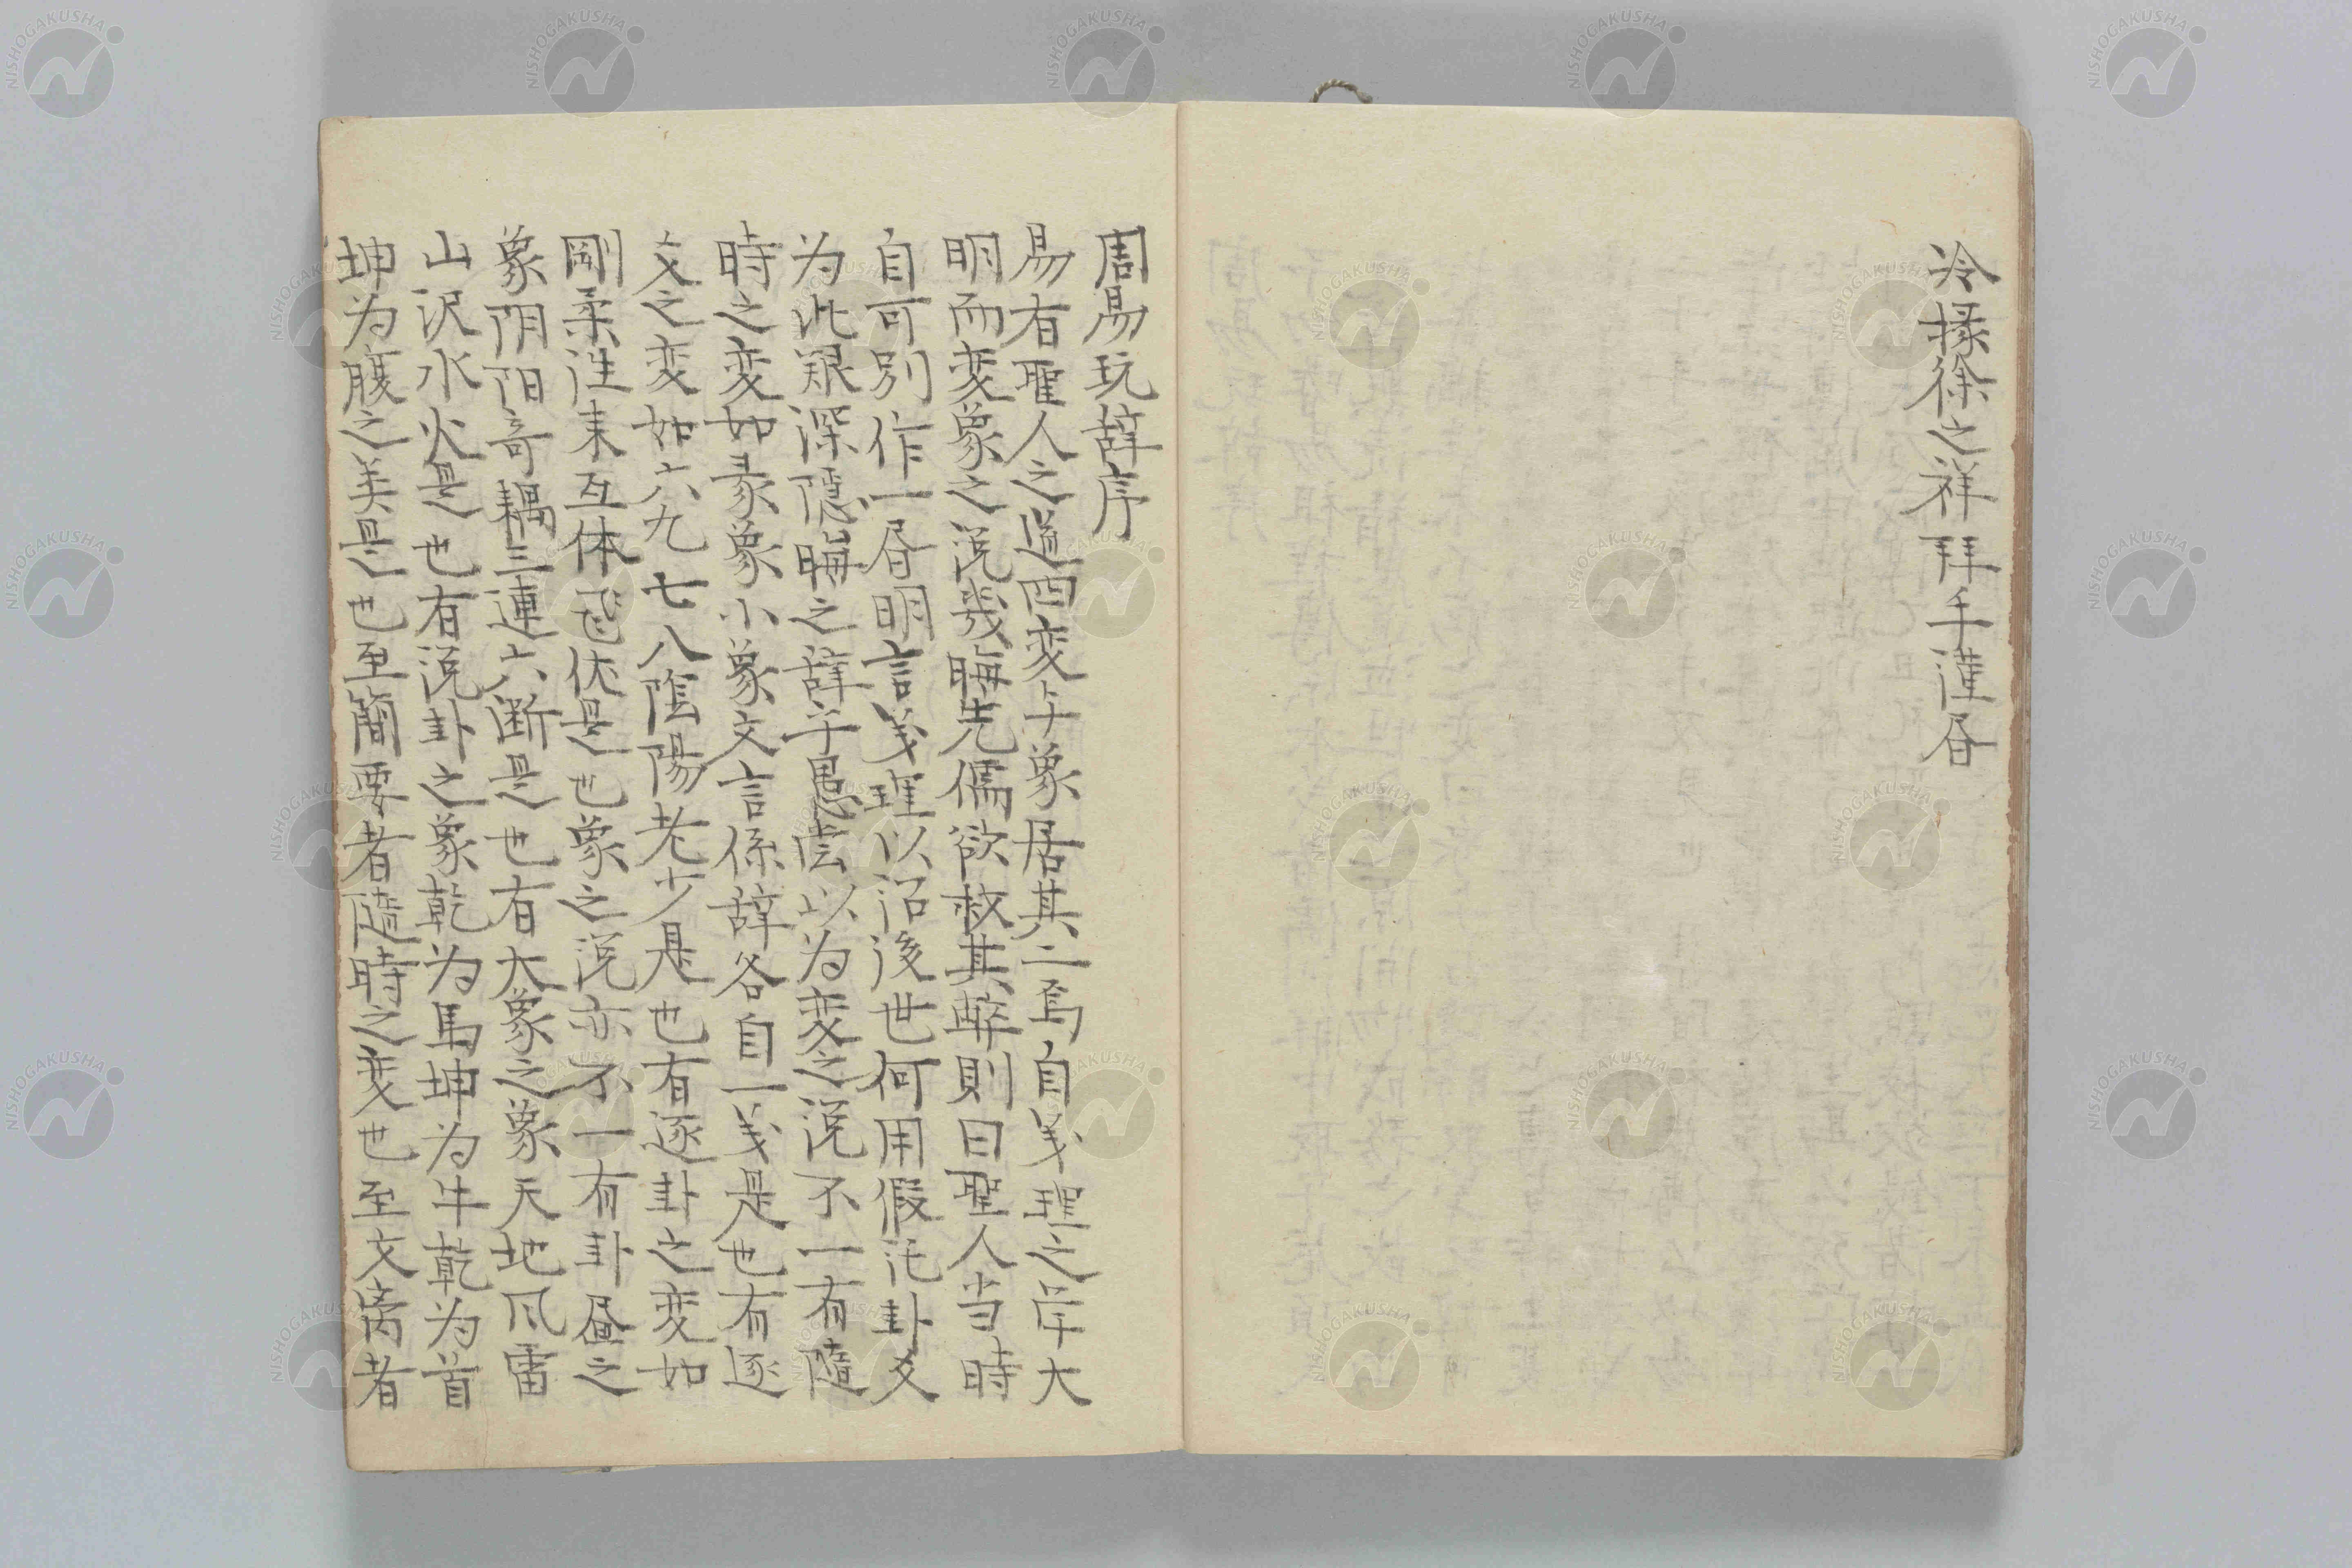 冷掾徐之祥拜手謹昼
周易玩辞序
易有聖人之道四変与象居其二焉自义理之学大
明而変象之説幾晦先儒欲救其弊則曰聖人当時
自可別作一昼明言义理以沼後世何用假託卦爻
为此艰深隠晦之辞乎愚尝以为変之説不一有隨
時之変如彖象小象文言係辞各自一义是也有逐
爻之変如六九七八隂陽老少是也有逐卦之変如
剛柔往来互体飞伏是也象之説亦不一有卦昼之
象阴阳奇耦三連六断是也有大象之象天地风雷
山沢水火是也有説卦之象乾为馬坤为牛乾为首
坤为腹之类是也至簡要者隨時之変也至文离者
NISHOGAKUSHA